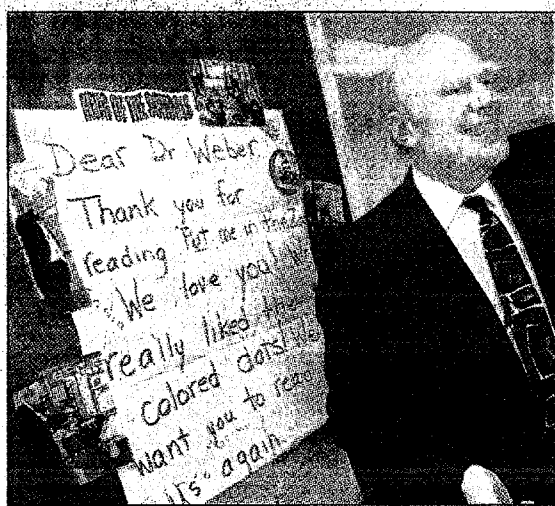 Dear Dr Weber
Thank you for
reading "Put me in the Z
We love you! We
really liked the
colored dots! We
want you to read
again